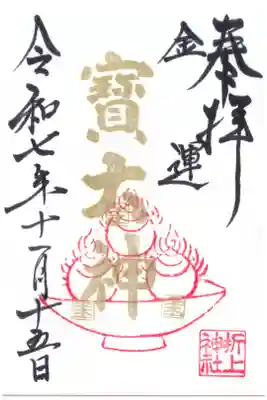 奉拝
金運
寶大神
令和七年十一月十五日
折上神社